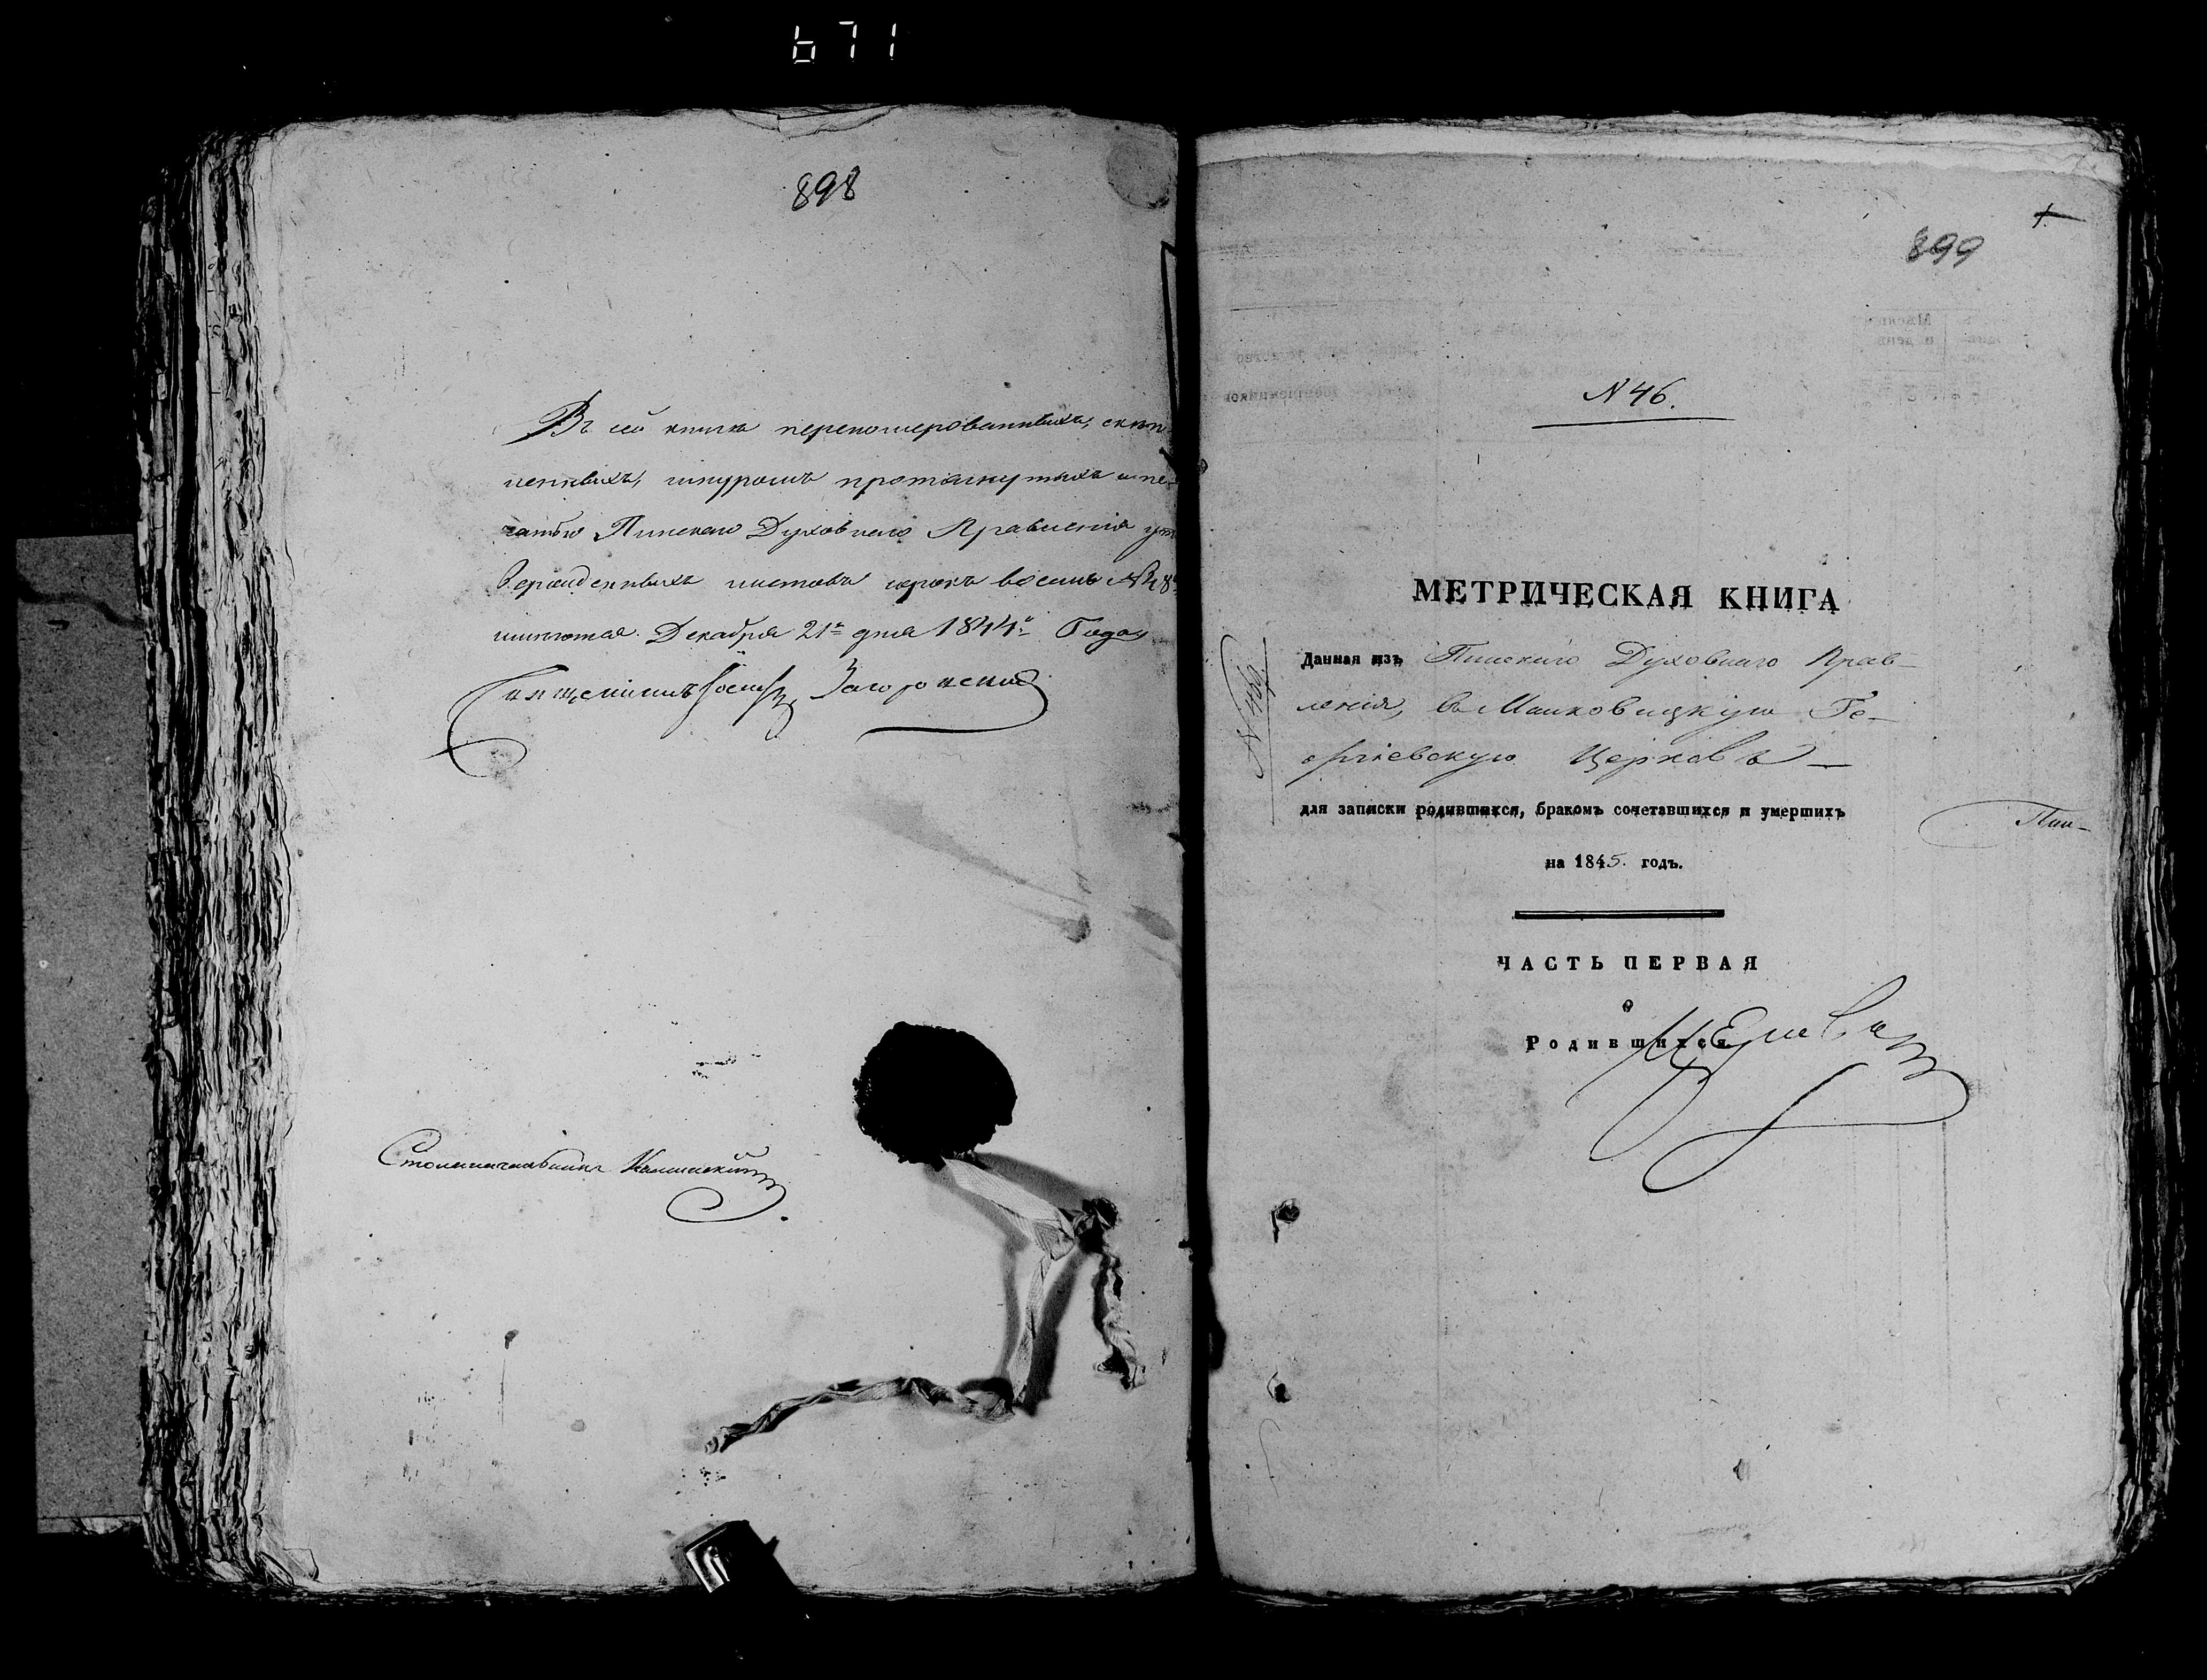 671
898
Въ сей книгѣ переномерованныхъ, скрѣп-
ленныхъ, шнуромъ протянутыхъ и пе-
чатью Пинскаго Духовнаго Правленія ут
вержденныхъ листовъ сорокъ восемь №48
имѣется. Декабря 21го дня 1844го Года
Священникъ Іосифъ Загоровскій
Столоначальникъ
1.
899
N 46.
МЕТРИЧЕСКАЯ КНИГА
Данная изъ Пинскаго Духовнаго Прав-
ленія, въ Малковицкую Ге-
оргіевскую Церковь
N 46.
для записки родившихся, бракомъ сочетавшихся и умершихъ
на 1845. годъ.
ЧАСТЬ ПЕРВАЯ
о
Родившихся